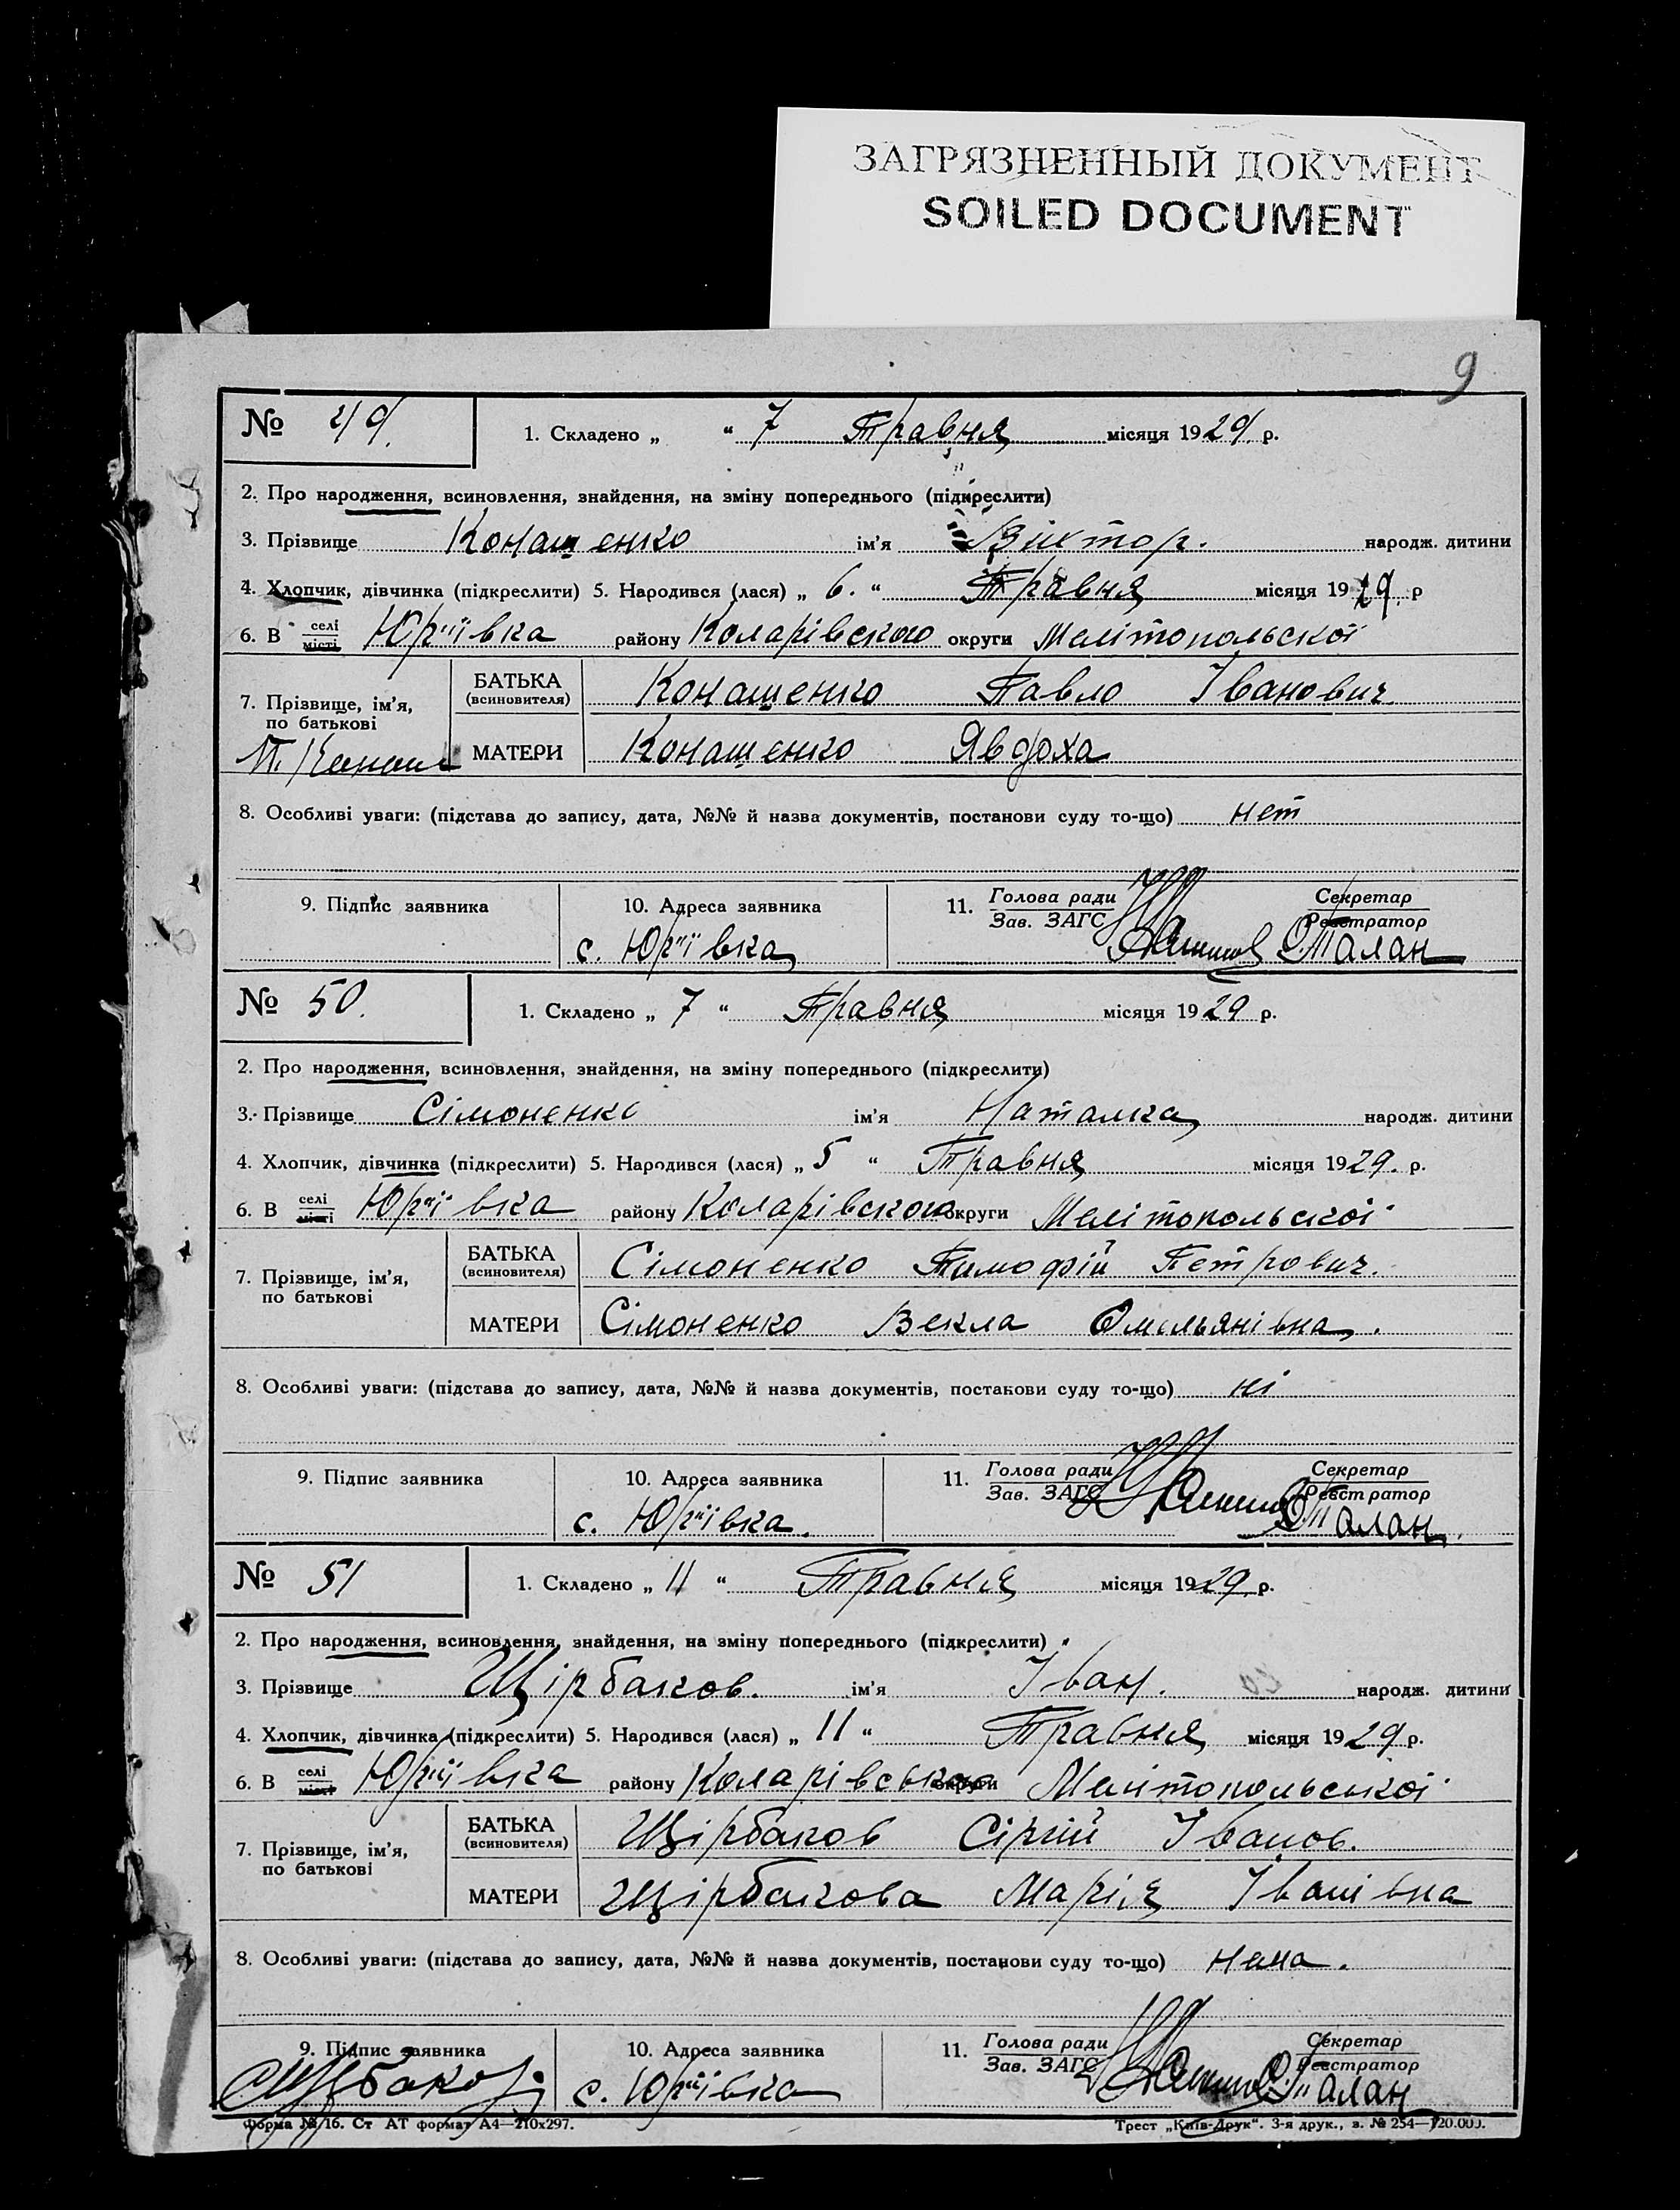 ЗАГРЯЗНЕННЫЙ ДОКУМЕНТ
SOILED DOCUMENT
9
№ 49. 1. Складено „ “ 7 Травня місяця 1929. р.
2. Про народження, всиновлення, знайдення, на зміну попереднього (підкреслити)
3. Прізвище Конашенко ім'я Віктор. народж. дитини
4. Хлопчик, дівчинка (підкреслити) 5. Народився (лася) „ 6. “ Травня місяця 1929. р
6. В селі місті Юріївка району Коларівского округи Мелітопольскої
7. Прізвище, ім'я, по батькові БАТЬКА (всиновителя) Конашенко Павло Іванович.
МАТЕРИ Конашенко Явдоха
8. Особливі уваги: (підстава до запису, дата, №№ й назва документів, постанови суду то-що) нет
9. Підпис заявника 10. Адреса заявника 11. Голова ради Зав. ЗАГС Секретар Реєстратор
с. Юріївка Талан
№ 50. 1. Складено „ 7 “ Травня місяця 1929 р.
2. Про народження, всиновлення, знайдення, на зміну попереднього (підкреслити)
3. Прізвище Сімоненко ім'я Наталка народж. дитини
4. Хлопчик, дівчинка (підкреслити) 5. Народився (лася) „ 5 “ Травня місяця 1929. р.
6. В селі місті Юріївка району Коларівского округи Мелітопольскої
7. Прізвище, ім'я, по батькові БАТЬКА (всиновителя) Сімоненко Тимофій Петрович.
МАТЕРИ Сімоненко Векла Омельянівна.
8. Особливі уваги: (підстава до запису, дата, №№ й назва документів, постанови суду то-що) ні
9. Підпис заявника 10. Адреса заявника 11. Голова ради Зав. ЗАГС Секретар Реєстратор
с. Юріївка. Талан.
№ 51 1. Складено „ 11 “ Травня місяця 1929. р.
2. Про народження, всиновлення, знайдення, на зміну попереднього (підкреслити)
3. Прізвище Щірбаков. ім'я Іван. народж. дитини
4. Хлопчик, дівчинка (підкреслити) 5. Народився (лася) „ 11 “ Травня місяця 1929 р.
6. В селі місті Юріївка району Коларівського округи Мелітопольської
7. Прізвище, ім'я, по батькові БАТЬКА (всиновителя) Щірбаков Сіргій Іванов.
МАТЕРИ Щірбакова Марія Іванівна
8. Особливі уваги: (підстава до запису, дата, №№ й назва документів, постанови суду то-що) нема.
9. Підпис заявника 10. Адреса заявника 11. Голова ради Зав. ЗАГС Секретар Реєстратор
с. Юріївка Талан
Форма № 16. Ст АТ формат А4—210х297. Трест „Київ-Друк“. 3-я друк., з. № 254—120.000.